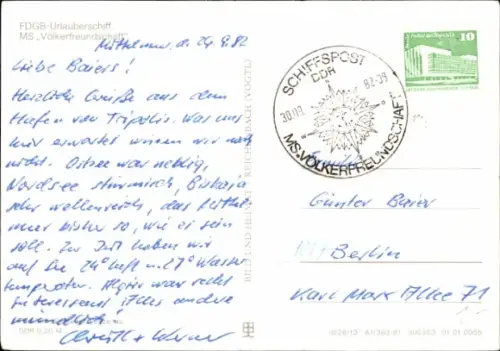 FDGB-Urlauberschiff
MS „Völkerfreundschaft"
Mittelmeer, d. 29.9.82
Liebe Baiers!
Herzliche Grüße aus dem
Hafen von Tripolis. Was uns
hier erwartet wissen wir noch
nicht. Ostsee war neblig,
Nordsee stürmisch, Biskaja
sehr wellenreich, das Mittel-
meer bisher so, wie es sein
soll. Zur Zeit haben wir
auf See 24° Luft u. 27° Wasser
temperatur. Algier war recht
interessant. Alles andere
mündlich!
+ Werner
BILD UND HEIMAT REICHENBACH (VOGTL)
SCHIFFSPOST
DDR
30.09. 82.-09
MS. VÖLKERFREUNDSCHAFT
10
DDR
Familie
Günter Baier
Berlin
Karl Marx Allee 71